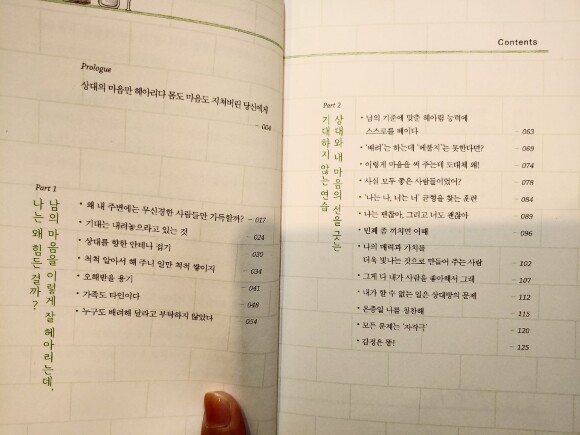 Prologue
상대의 마음만 헤아리다 몸도 마음도 지쳐버린 당신에게
- 004
Part 1
남의 마음을 이렇게 잘 헤아리는데,
나는 왜 힘든 걸까?
• 왜 내 주변에는 무신경한 사람들만 가득할까? - 017
• 기대는 내려놓으라고 있는 것 - 024
• 상대를 향한 안테나 접기 - 030
• 척척 알아서 해 주니 일만 척척 쌓이지 - 034
• 오해받을 용기 - 041
• 가족도 타인이다 - 048
• 누구도 배려해 달라고 부탁하지 않았다 - 054
Contents
Part 2
상대와 내 마음의 선을 긋는
기대하지 않는 연습
• 남의 기준에 맞춘 헤아림 능력에
스스로를 베이다 - 063
• '배려'는 하는데 '베풂지'는 못한다면? - 069
• 이렇게 마음을 써 주는데 도대체 왜! - 074
• 사실 모두 좋은 사람들이었어? - 078
• '나는 나, 너는 너' 균형을 찾는 훈련 - 084
• 나는 괜찮아, 그리고 너도 괜찮아 - 089
• 민폐 좀 끼치면 어때 - 096
• 나의 매력과 가치를
더욱 빛나는 것으로 만들어 주는 사람 - 102
• 그게 다 내가 사람을 좋아해서 그래 - 107
• 내가 할 수 없는 일은 상대방의 문제 - 112
• 온종일 나를 칭찬해 - 115
• 모든 문제는 '자작극' - 120
• 감정은 똥! - 125